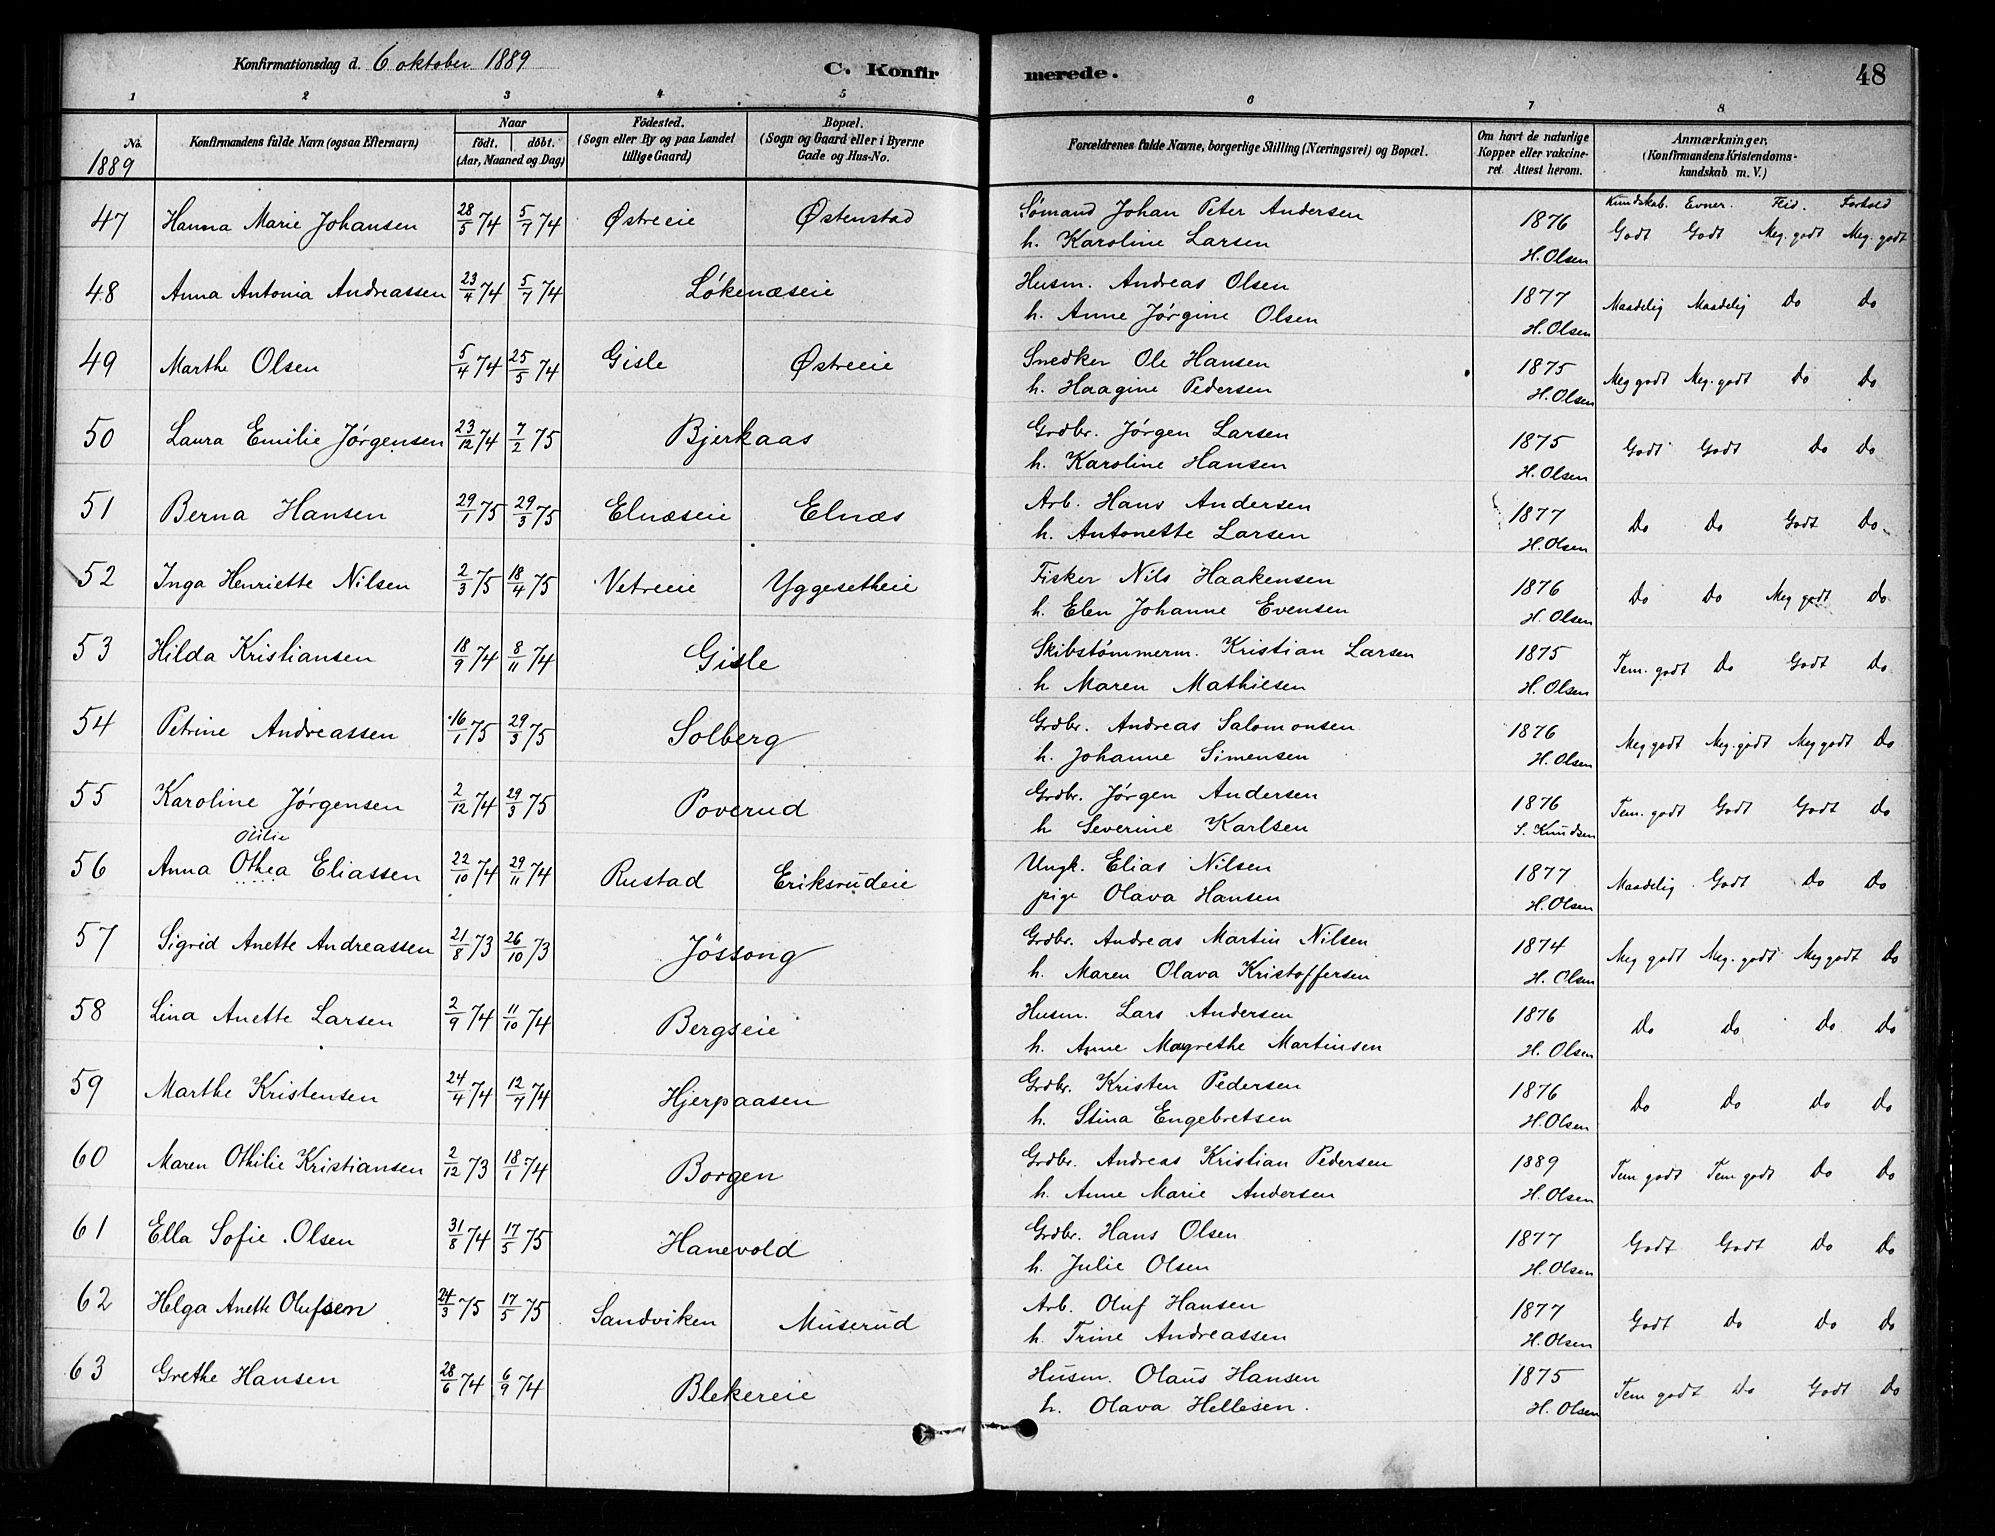 Konfirmationsdag d. 6 oktober 1889 C. Konfirmerede. 48
1 2 3 4 5 6 7 8
No. 1889 Konfirmandens fulde Navn (ogsaa Efternavn) Naar födt. döbt. (Aar, Maaned og Dag) Födested. (Sogn eller By og paa Landet tillige Gaard) Bopæl. (Sogn og Gaard eller i Byerne Gade og Hus-No. Forældrenes fulde Navne, borgerlige Stilling (Næringsvei) og Bopæl. Om havt de naturlige Kopper eller vakcineret. Attest herom. Anmærkninger, (Konfirmandens Kristendomskundskab m. V.)
Kundskab. Evner. Flid. Forhold
47 Hanna Marie Johansen 28/5 74 5/7 74 Østreeie Østenstad Sømand Johan Peter Andersen 1876 Godt Godt Meg. godt Meg. godt
h. Karoline Larsen H. Olsen
48 Anna Antonia Andreassen 23/4 74 5/7 74 Løkenæseie Husm. Andreas Olsen 1877 Maadelig Maadelig Do Do
h. Anne Jørgine Olsen H. Olsen
49 Marthe Olsen 5/4 74 25/5 74 Gisle Østreeie Snedker Ole Hansen 1875 Meg godt Meg. godt Do Do
h. Haagine Pedersen H. Olsen
50 Laura Emilie Jørgensen 23/12 74 7/2 75 Bjerkaas Grdbr. Jørgen Larsen 1875 Godt Godt Do Do
h. Karoline Hansen H. Olsen
51 Berna Hansen 29/1 75 29/3 75 Elnæseie Elnæs Arb. Hans Andersen 1877 Do Do Godt Do
h. Antonette Larsen H. Olsen
52 Inga Henriette Nilsen 2/3 75 18/4 75 Vetreeie Yggesetheie Fisker Nils Haakensen 1876 Do Do Meg godt Do
h. Elen Johanne Evensen H. Olsen
53 Hilda Kristiansen 18/9 74 8/11 74 Gisle Skibstømmerm. Kristian Larsen 1875 Tem. godt Do Godt Do
h. Maren Mathiesen H. Olsen
54 Petrine Andreassen 16/1 75 29/3 75 Solberg Grdbr. Andreas Salomonsen 1876 Meg godt Meg. godt Meg godt Do
h. Johanne Simensen H. Olsen
55 Karoline Jørgensen 2/12 74 29/3 75 Poverud Grdbr. Jørgen Andersen 1876 Tem. godt Godt Godt Do
h. Severine Karlsen S. Knudsen
Otilie
56 Anna Othea Eliassen 22/10 74 29/11 74 Rustad Eriksrudeie Ungk. Elias Nilsen 1877 Maadelig Godt Do Do
pige Olava Hansen H. Olsen
57 Sigrid Anette Andreassen 21/8 73 26/10 73 Jössong Grdbr. Andreas Martin Nilsen 1874 Meg godt Meg. godt Meg godt Do
h. Maren Olava Kristoffersen H. Olsen
58 Lina Anette Larsen 2/9 74 11/10 74 Bergseie Husm. Lars Andersen 1876 Do Do Do Do
h. Anne Magrethe Martinsen H. Olsen
59 Marthe Kristensen 24/4 74 12/7 74 Hjerpaasen Grdbr. Kristen Pedersen 1876 Do Do Do Do
h. Stina Engebretsen H. Olsen
60 Maren Othilie Kristiansen 2/12 73 18/1 74 Borgen Grdbr. Andreas Kristian Pedersen 1889 Tem godt Tem godt Do Do
h. Anne Marie Andersen H. Olsen
61 Ella Sofie Olsen 31/8 74 17/5 75 Hanevold Grdbr. Hans Olsen 1877 Godt Godt Do Do
h. Julie Olsen H. Olsen
62 Helga Anette Olufsen 24/3 75 17/5 75 Sandviken Muserud Arb. Oluf Hansen 1877 Godt Do Do Do
h. Trine Andreassen H. Olsen
63 Grethe Hansen 28/6 74 6/9 74 Blekereie Husm. Olaus Hansen 1875 Tem godt Do Godt Do
h. Olava Hellesen. H. Olsen